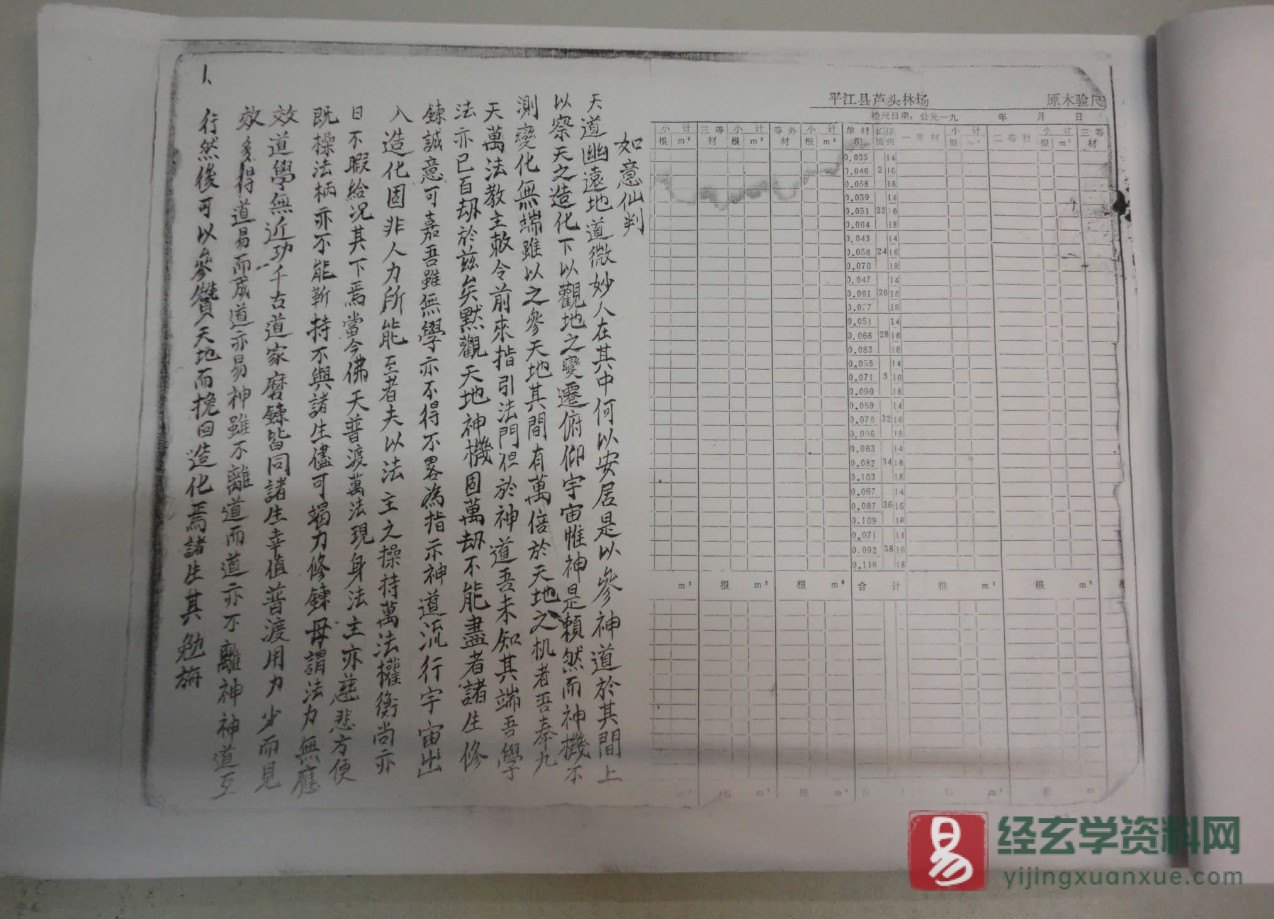 如意仙判
天道幽遠地道微妙人在其中何以安居是以參神道於其間上
以察天之造化下以觀地之變遷俯仰宇宙惟神是賴然而神機不
測變化無端雖以之參天地其間有萬倍於天地之机者吾奉九
天萬法教主敕令前來指引法門但於神道吾未知其端吾學
法亦已百劫於兹矣黙觀天地神機固萬劫不能盡者諸生修
鍊誠意可嘉吾雖無學亦不得不畧為指示神道流行宇宙出
入造化固非人力所能至者夫以法主之操持萬法權衡尚亦
日不暇給况其下焉當今佛天普渡萬法現身法主亦慈悲方便
既操法柄亦不能靳持不與諸生儘可竭力修鍊毋謂法力無應
效道學無近功千古道家磨鍊皆同諸生幸值普渡用力少而見
效多得道易而成道亦易神雖不離道而道亦不離神神道互
行然後可以參贊天地而挽回造化焉諸生其勉旃
1、
平江县芦头林场
原木验尺
检尺日期：公元一九 年 月 日
小计 三等材 小计 等外 小计 单材积 一等材 小计 二等材 小计 三等材
根 m³ 根 m³ 根 m³ 根 m³ 根 m³
0.035 14
0.046 2 16
0.058 18
0.039 14
0.051 22 16
0.064 18
0.043 14
0.056 24 16
0.070 18
0.047 14
0.061 26 16
18
0.051 14
0.066 28 16
0.083 18
14
0.071 3 16
0.090 18
14
0.076 32 16
18
0.063 14
0.082 34 16
0.103 18
0.067 14
0.087 36 16
0.109 18
0.071 14
0.092 38 16
0.116 18
m³ 根 m³ 根 m³ 合计 根 m³ 根 m³ 根
m³ 根 m³ 根 m³ 合计 根 m³ 根
易
经玄学资料网
yijingxuanxue.com